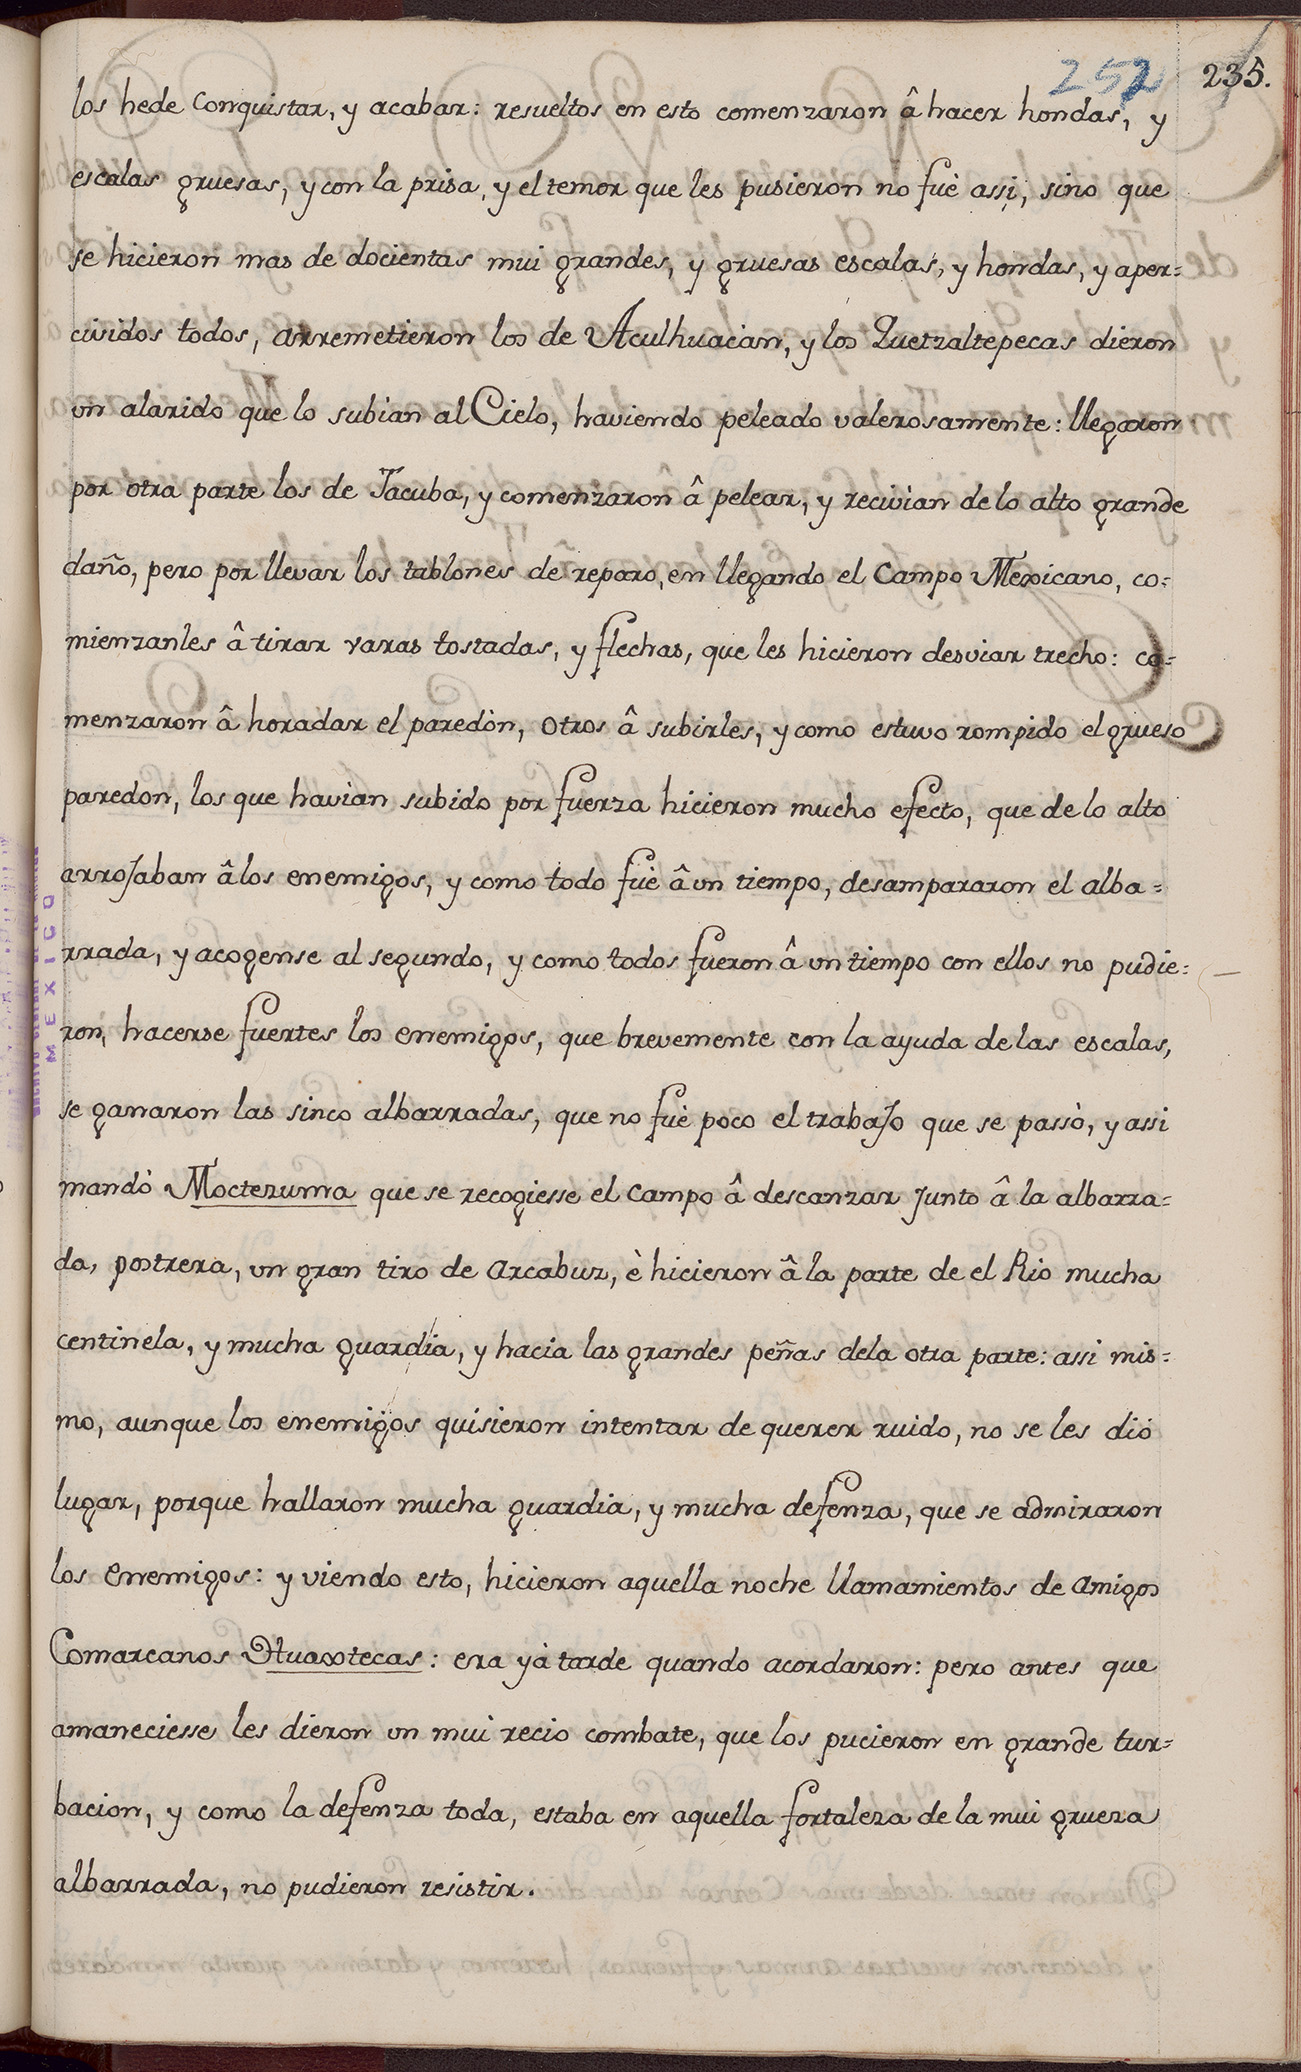 252 235.
los hede Conquistar, y acabar: resueltos en esto comenzaron â hacer hondas, y
escalas gruesas, y con la prisa, y el temor que les pusieron no fuè assi, sino que
se hicieron mas de docientas mui grandes, y gruesas escalas, y hondas, y aper=
cividos todos, arremetieron los de Aculhuacan, y los Quetzaltepecas dieron
un alarido que lo subian al Cielo, haviendo peleado valerosamente: llegaron
por otra parte los de Tacuba, y comenzaron â pelear, y recivìan de lo alto grande
daño, pero por llevar los tablones de reparo, en llegando el Campo Mexicano, co=
mienzanles â tirar varas tostadas, y flechas, que les hicieron desviar trecho: co=
menzaron â horadar el paredòn, otros â subirles, y como estuvo rompido el grueso
paredon, los que havian subido por fuerza hicieron mucho efecto, que de lo alto
arrojaban âlos enemigos, y como todo fuè â un tiempo, desampararon el alba=
rrada, y acogense al segundo, y como todos fueron â un tiempo con ellos no pudie=
ron, hacerse fuertes los enemigos, que brevemente con la ayuda de las escalas,
se ganaron las sinco albarradas, que no fuè poco el trabajo que se passò, y assi
mandò Moctezuma que se recogiesse el Campo â descanzar junto â la albarra=
da, postrera, un gran tiro de arcabuz, è hicieron â la parte de el Rio mucha
centinela, y mucha guardia, y hacia las grandes peñas dela otra parte: assi mis=
mo, aunque los enemigos quisieron intentar de querer ruido, no se les dió
lugar, porque hallaron mucha guardia, y mucha defenza, que se admiraron
los enemigos: y viendo esto, hicieron aquella noche llamamientos de amigos
Comarcanos Huaxotecas: era yà tarde quando acordaron: pero antes que
amaneciesse les dieron un mui recio combate, que los pucieron en grande tur=
bacion, y como la defenza toda, estaba en aquella fortaleza de la mui grueza
albarrada, no pudieron resistir.
MEXICO